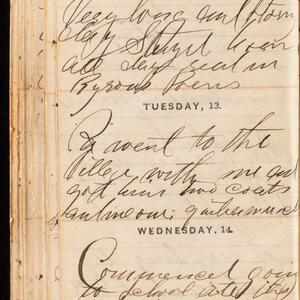 Very long and
day Stayed home
all day read in
Byrons Poems
TUESDAY, 13.
went to the
Village with me and
got him two coats
and me one;
WEDNESDAY, 14.
Commenced going
to school